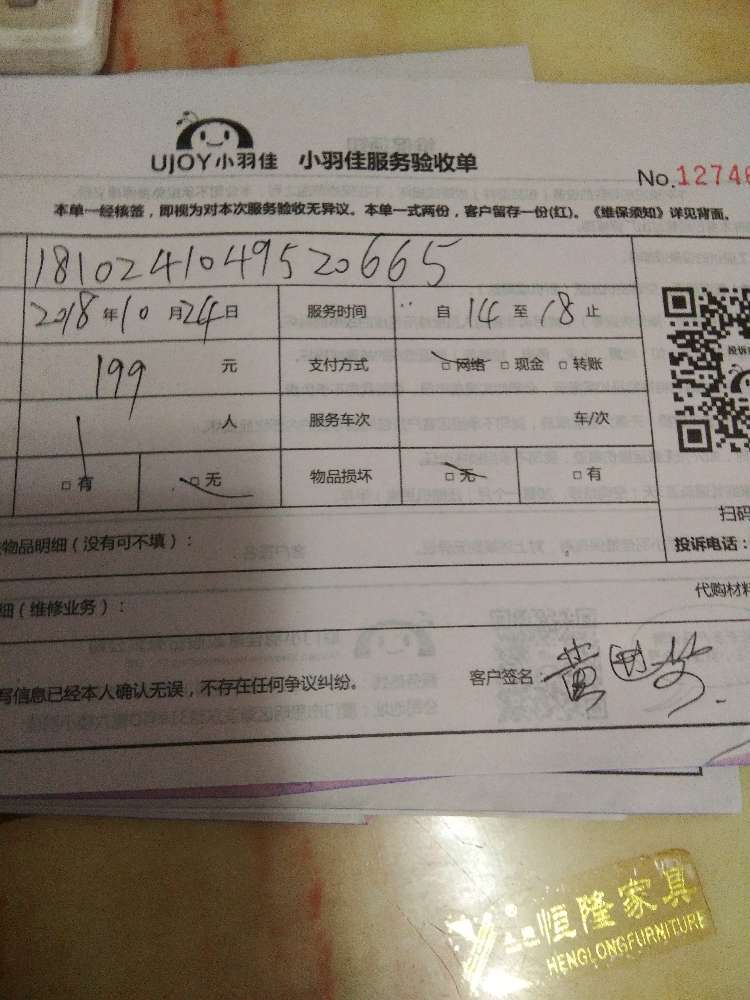 UJOY小羽佳 小羽佳服务验收单
No.12746
本单一经核签，即视为对本次服务验收无异议。本单一式两份，客户留存一份(红)。《维保须知》详见背面。
1810241049520665
2018年10月24日 服务时间 自 14 至 18 止
199 元 支付方式 □网络 □现金 □转账
1 人 服务车次 车/次
□有 □无 物品损坏 □无 □有
扫码
物品明细（没有可不填）： 投诉电话：
细（维修业务）： 代购材料
写信息已经本人确认无误，不存在任何争议纠纷。 客户签名：
恒隆家具
HENGLONGFURNITURE